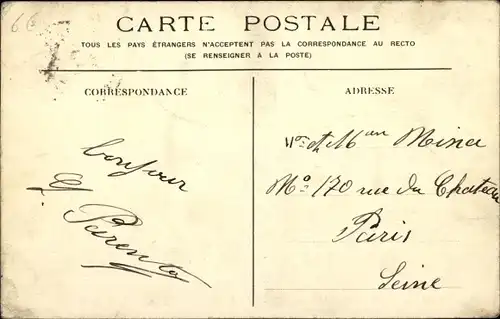 66
CARTE POSTALE
TOUS LES PAYS ÉTRANGERS N'ACCEPTENT PAS LA CORRESPONDANCE AU RECTO
(SE RENSEIGNER A LA POSTE)
CORRESPONDANCE
bonjour
E. Parenta
ADRESSE
et Man Mina
No 170 rue du Chateau
Paris
Seine